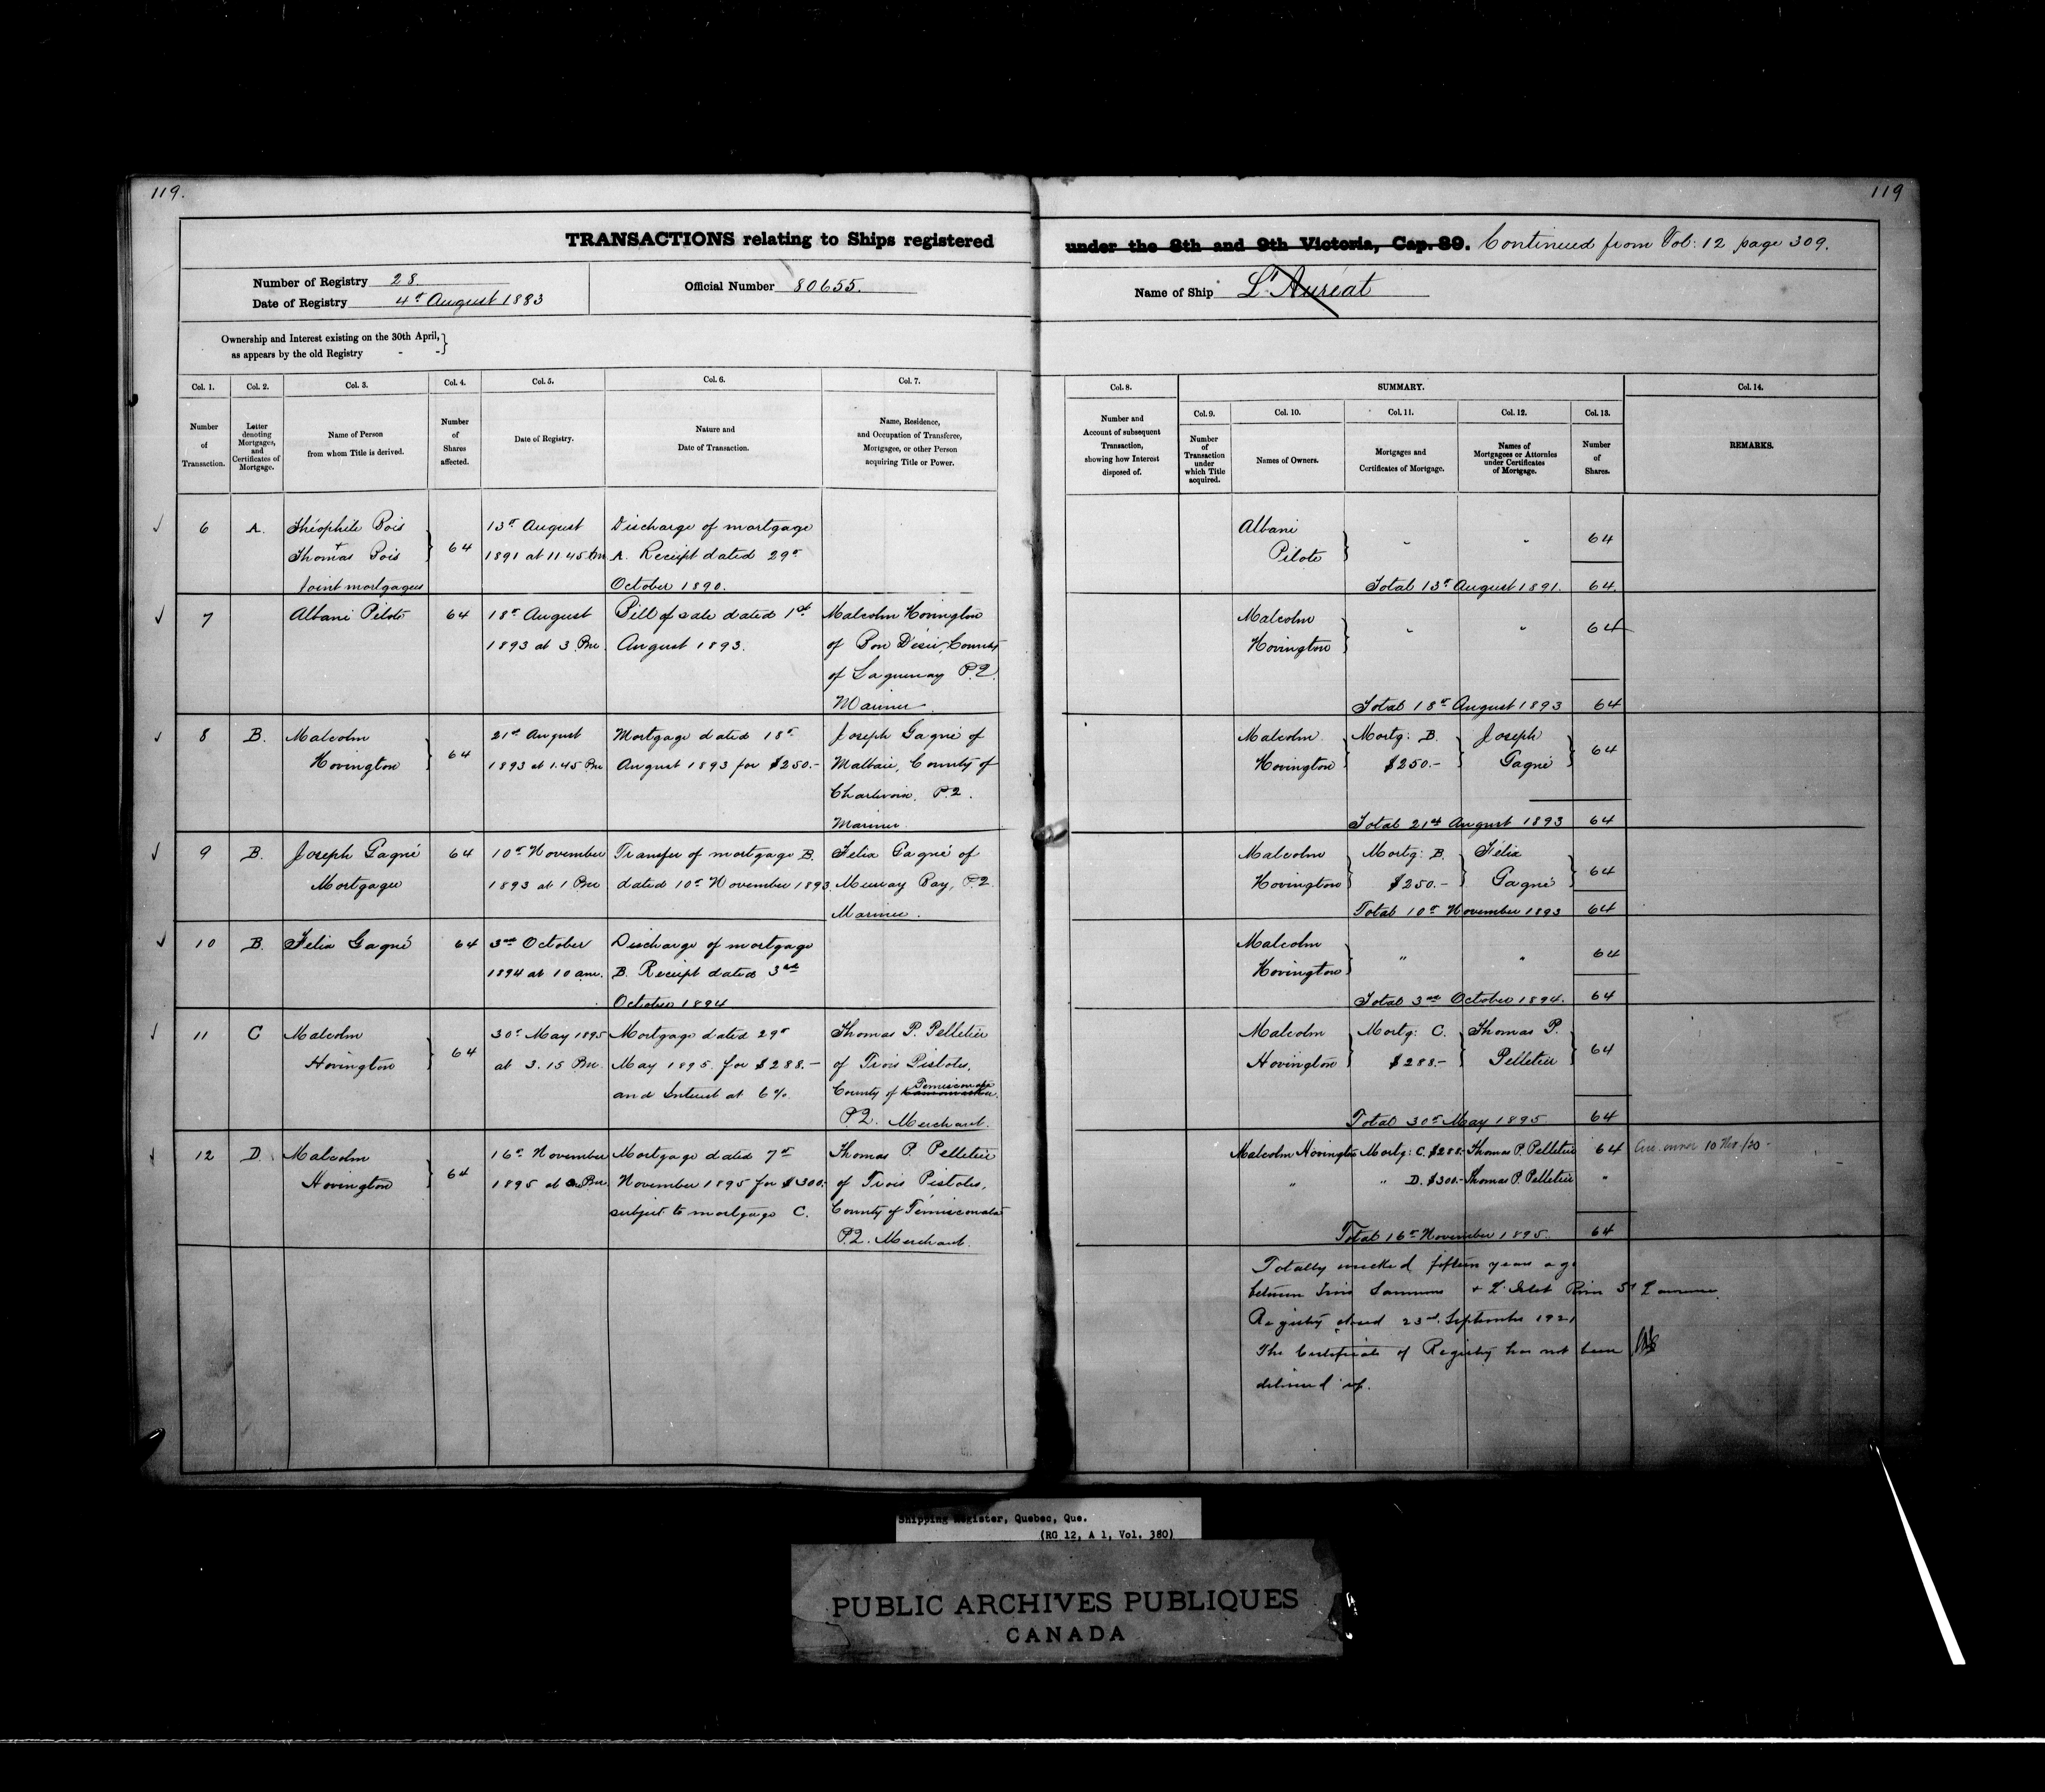 119.
119
TRANSACTIONS relating to Ships registered under the 8th and 9th Victoria, Cap. 89. Continued from Vol: 12 page 309.
Number of Registry 28
Date of Registry 4th August 1883
Official Number 80655.
Name of Ship L'Auréat
Ownership and Interest existing on the 30th April, as appears by the old Registry - -
Col. 1. Number of Transaction.
Col. 2. Letter denoting Mortgages, and Certificates of Mortgage.
Col. 3. Name of Person from whom Title is derived.
Col. 4. Number of Shares affected.
Col. 5. Date of Registry.
Col. 6. Nature and Date of Transaction.
Col. 7. Name, Residence, and Occupation of Transferee, Mortgagee, or other Person acquiring Title or Power.
Col. 8. Number and Account of subsequent Transaction, showing how Interest disposed of.
SUMMARY.
Col. 9. Number of Transaction under which Title acquired.
Col. 10. Names of Owners.
Col. 11. Mortgages and Certificates of Mortgage.
Col. 12. Names of Mortgagees or Attornies under Certificates of Mortgage.
Col. 13. Number of Shares.
Col. 14. REMARKS.
6 A. Théophile Bois + Thomas Bois Joint mortgagees 64 13th August 1891 at 11 45 am Discharge of mortgage A. Receipt dated 29th October 1890.
Albani Pilote " " 64
Total 13th August 1891. 64.
7 Albani Pilote 64 18th August 1893 at 3 Pm. Bill of sale dated 1st August 1893. Malcolm Hovington of Bon Désir, County of Saguenay P.Q. Mariner.
Malcolm Hovington " " 64
Total 18th August 1893 64
8 B. Malcolm Hovington 64 21st August 1893 at 1.45 Pm Mortgage dated 18th August 1893 for $250.- Joseph Gagné of Malbaie, County of Charlevoix. P.Q. Mariner.
Malcolm Hovington Mortg: B. $250.- Joseph Gagné 64
Total 21st August 1893 64
9 B. Joseph Gagné Mortgagee 64 10th November 1893 at 1 Pm Transfer of mortgage B. dated 10th November 1893. Félix Gagné of Murray Bay, P.Q. Mariner.
Malcolm Hovington Mortg: B. $250.- Félix Gagné 64
Total 10th November 1893 64
10 B. Félix Gagné 64 3rd October 1894 at 10 am. Discharge of mortgage B. Receipt dated 3rd October 1894
Malcolm Hovington " " 64
Total 3rd October 1894. 64
11 C Malcolm Hovington 64 30th May 1895 at 3.15 Pm. Mortgage dated 29th May 1895. for $288.- and Interest at 6%. Thomas P. Pelletier of Trois Pistoles, County of Temiscouata P.Q. Merchant.
Malcolm Hovington Mortg: C. $288.- Thomas P. Pelletier 64
Total 30th May 1895 64
12 D. Malcolm Hovington 64 16th November 1895 at Pm. Mortgage dated 7th November 1895 for $300.- subject to mortgage C. Thomas P. Pelletier of Trois Pistoles, County of Témiscouata P.Q. Merchant.
Malcolm Hovington Mortg: C. $288.- Thomas P. Pelletier 64 owner 10 Nov./20-
" " D. $300.- Thomas P. Pelletier "
Total 16th November 1895. 64
Totally wrecked fifteen years ago
between Trois Saumons + L'Islet River St Lawrence.
Registry closed 23rd September 1921
The Certificate of Registry has not been
delivered up.
Shipping Register, Quebec, Que.
(RG 12, A 1, Vol. 380)
PUBLIC ARCHIVES PUBLIQUES
CANADA